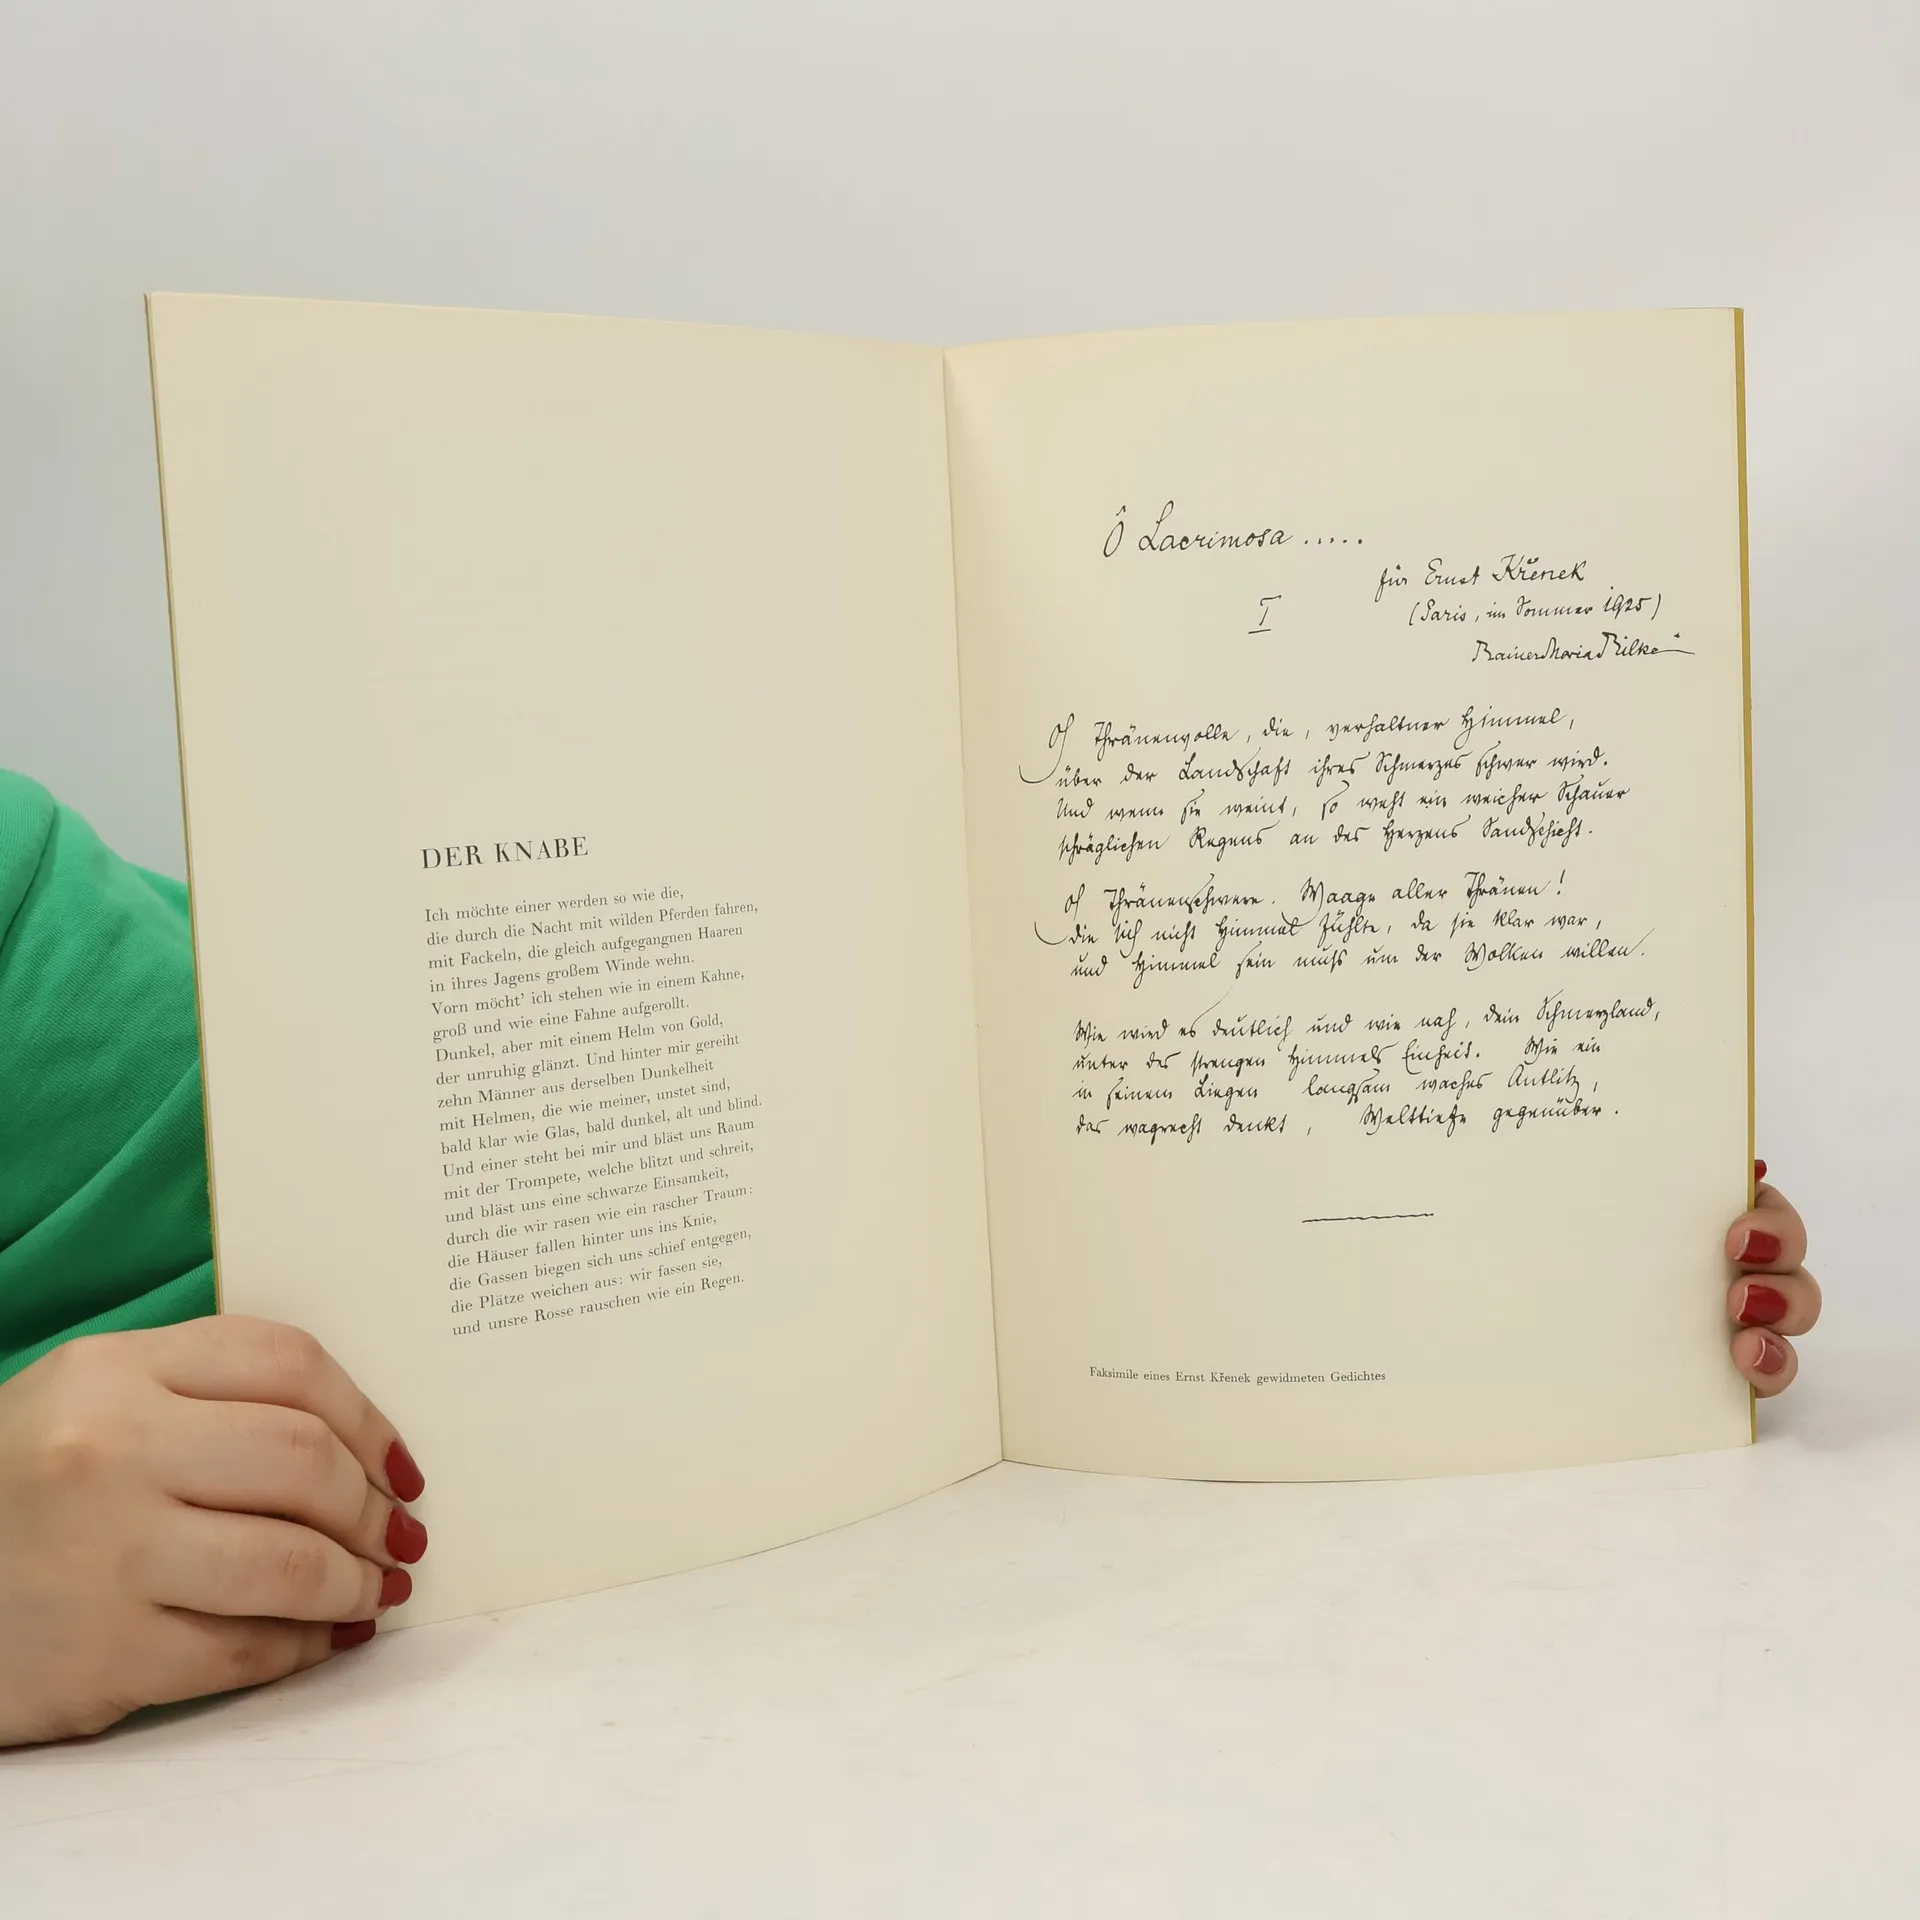 DER KNABE
Ich möchte einer werden so wie die,
die durch die Nacht mit wilden Pferden fahren,
mit Fackeln, die gleich aufgegangnen Haaren
in ihres Jagens großem Winde wehn.
Vorn möcht' ich stehen wie in einem Kahne,
groß und wie eine Fahne aufgerollt.
Dunkel, aber mit einem Helm von Gold,
der unruhig glänzt. Und hinter mir gereiht
zehn Männer aus derselben Dunkelheit
mit Helmen, die wie meiner, unstet sind,
bald klar wie Glas, bald dunkel, alt und blind.
Und einer steht bei mir und bläst uns Raum
mit der Trompete, welche blitzt und schreit,
und bläst uns eine schwarze Einsamkeit,
durch die wir rasen wie ein rascher Traum:
die Häuser fallen hinter uns ins Knie,
die Gassen biegen sich uns schief entgegen,
die Plätze weichen aus: wir fassen sie,
und unsre Rosse rauschen wie ein Regen.
Ô Lacrimosa .....
für Ernst Křenek
(Paris, im Sommer 1925)
I
Rainer Maria Rilke
Oh Thränenvolle, die, verhaltner Himmel,
über der Landschaft ihres Schmerzes schwer wird.
Und wenn sie weint, so weht ein weicher Schauer
schräglichen Regens an des Herzens Sandschicht.
Oh Thränenschwere. Waage aller Thränen!
die sich nicht Himmel fühlte, da sie klar war,
und Himmel sein muß um der Wolken willen.
Wie wird es deutlich und wie nah, dein Schmerzland,
unter des strengen Himmels Einheit. Wie ein
in seinem Liegen langsam waches Antlitz,
das wagrecht denkt, Welttiefe gegenüber.
Faksimile eines Ernst Křenek gewidmeten Gedichtes